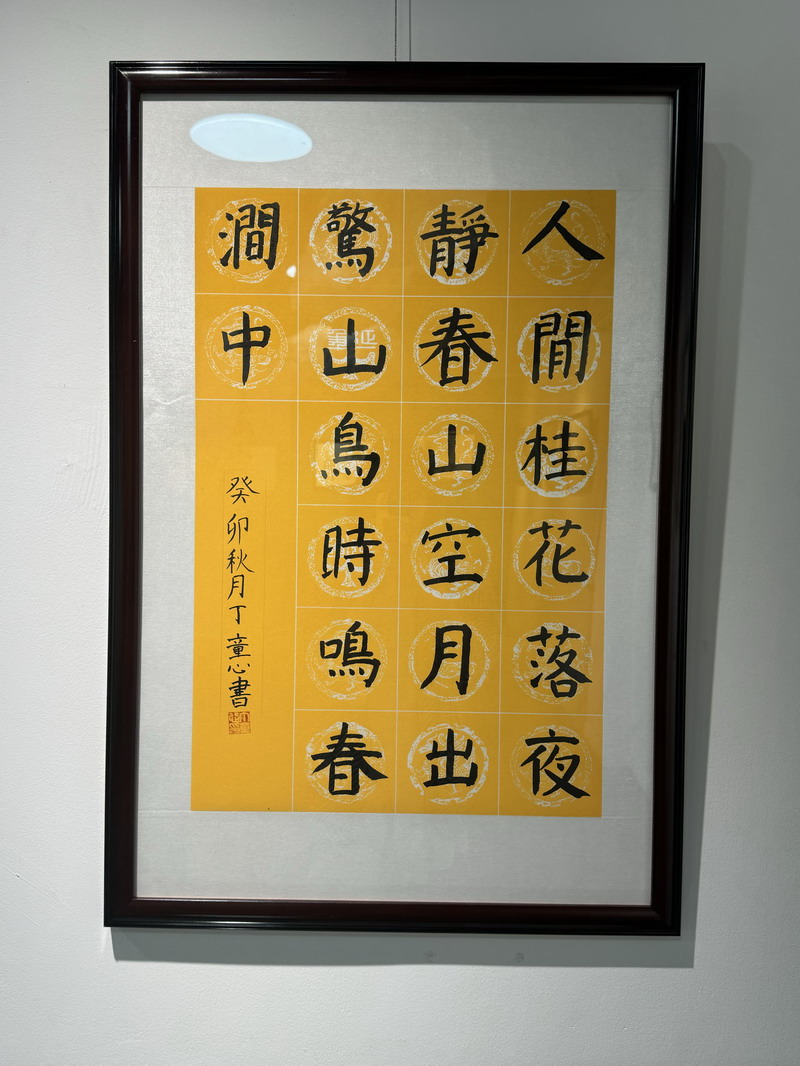 人閒桂花落夜
靜春山空月出
驚山鳥時鳴春
澗中
癸卯秋月丁童心書